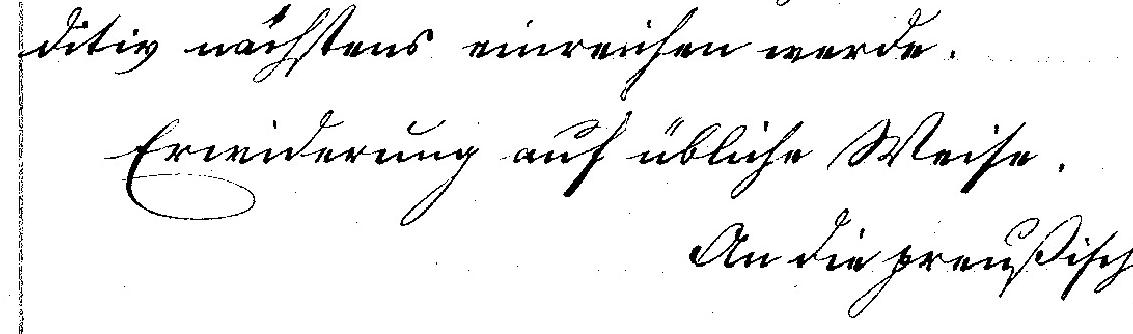 ditiv nächstens einreichen werde.
Erwiderung auf übliche Weise.
An die preußisch